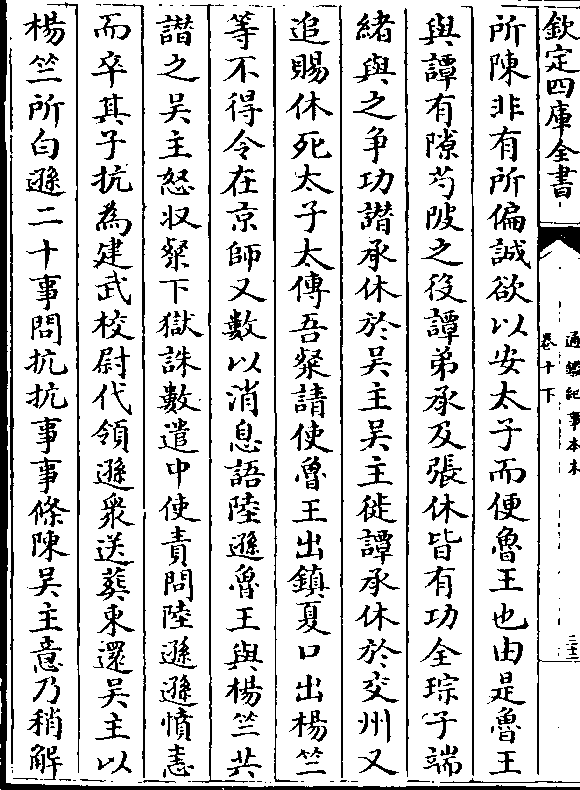 欽定四庫全書
通鑑紀事本末
卷十下
三十二
所陳非有所偏誠欲以安太子而便魯王也由是魯王
與譚有隙芍陂之役譚弟承及張休皆有功全琮子端
緒與之爭功譛承休於吴主吴主徙譚承休於交州又
追賜休死太子太傅吾粲請使魯王出鎮夏口出楊竺
等不得令在京師又數以消息語陸遜魯王與楊竺共
譛之吴主怒収粲下獄誅數遣中使責問陸遜遜憤恚
而卒其子抗為建武校尉代領遜衆送葬東還吴主以
楊竺所白遜二十事問抗抗事事條陳吴主意乃稍解